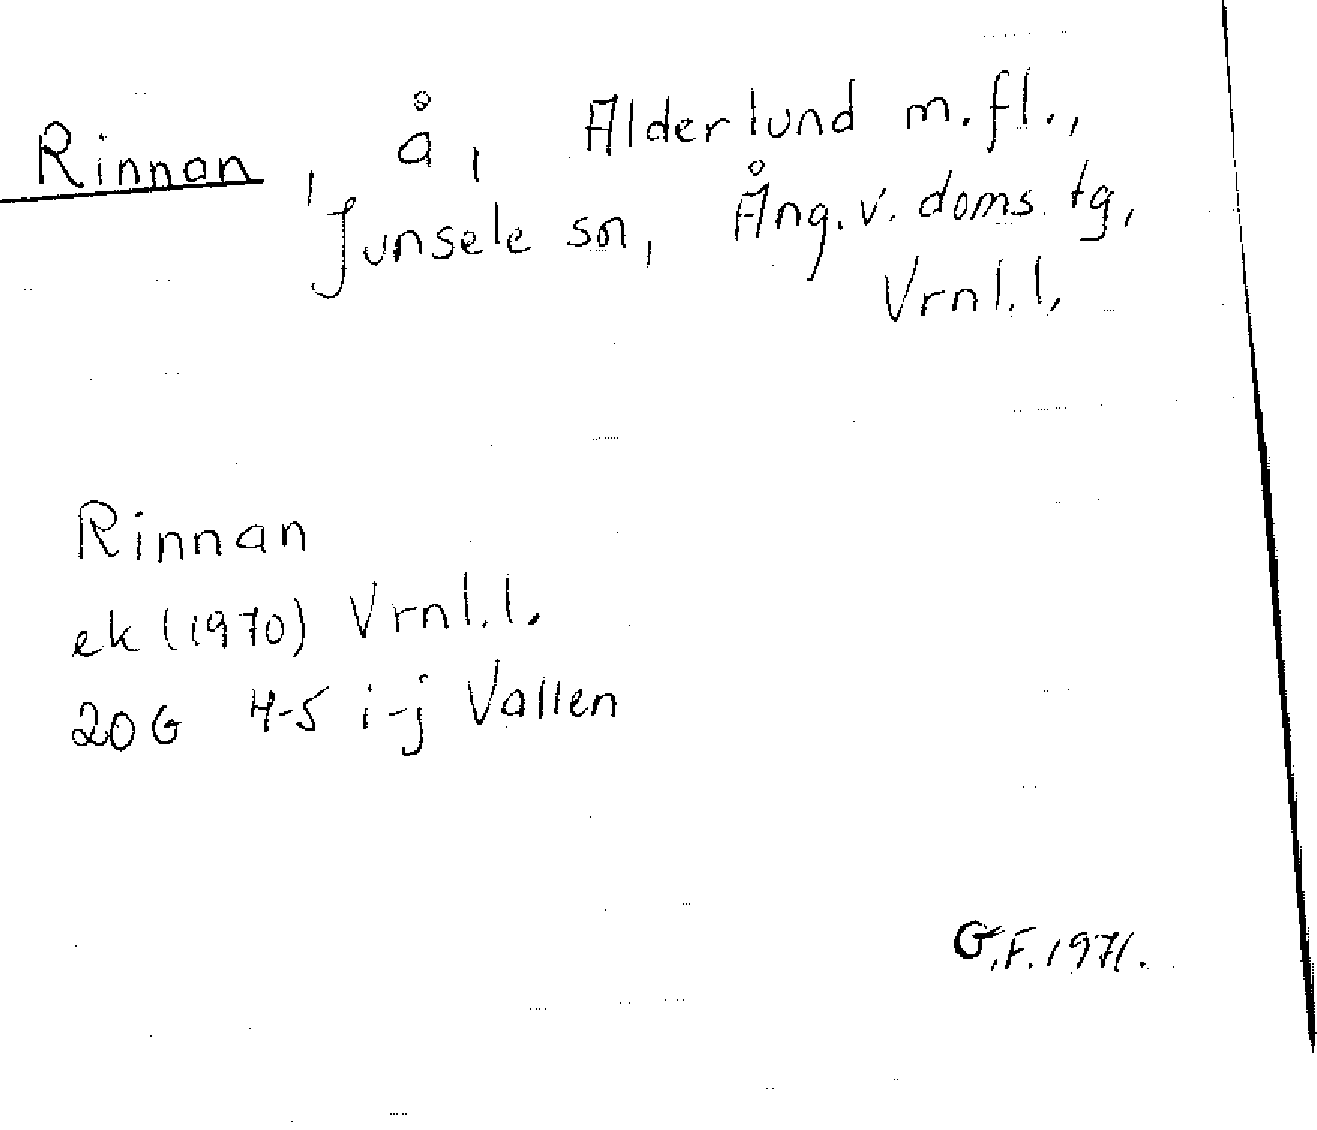 Rinnan, å, Alderlund m.fl.,
Junsele sn, Ång.v. doms.tg,
Vrnl.l.
Rinnan
ek (1970) Vrnl.l.
20 G 4-5 i-j Vallen
G.F. 1971.